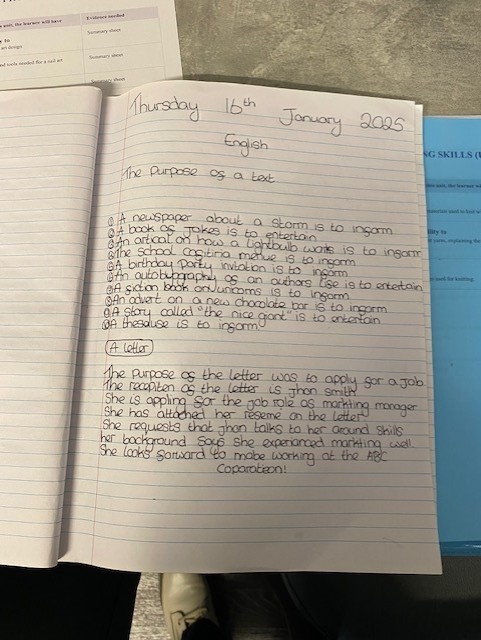 unit, the learner will have
Evidence needed
art design
Summary sheet
tools needed for a nail art
Summary sheet
Summary sheet
Thursday 16th January 2025
English
The purpose of a text
① A newspaper about a storm is to inform
② A book of Jokes is to entertain
③ An artical on how a lightbulb works is to inform
④ The school cafitiria menue is to inform
⑤ A birthday party invitation is to inform
⑥ An autobiography of an authors life is to entertain
⑦ A fiction book on unicorns is to inform
⑧ An advert on a new chocolate bar is to inform
⑨ A story called "the nice giant" is to entertain
⑩ A thesause is to inform
A letter
The purpose of the letter was to apply for a job
The recepiten of the letter is Jhon smith
She is appling for the job role of markting manager
She has attached her reseme on the letter
She requests that Jhon talks to her around skills
her background says she experianced markting well.
She looks forward to mabe working at the ABC
Coparateon!
NG SKILLS (